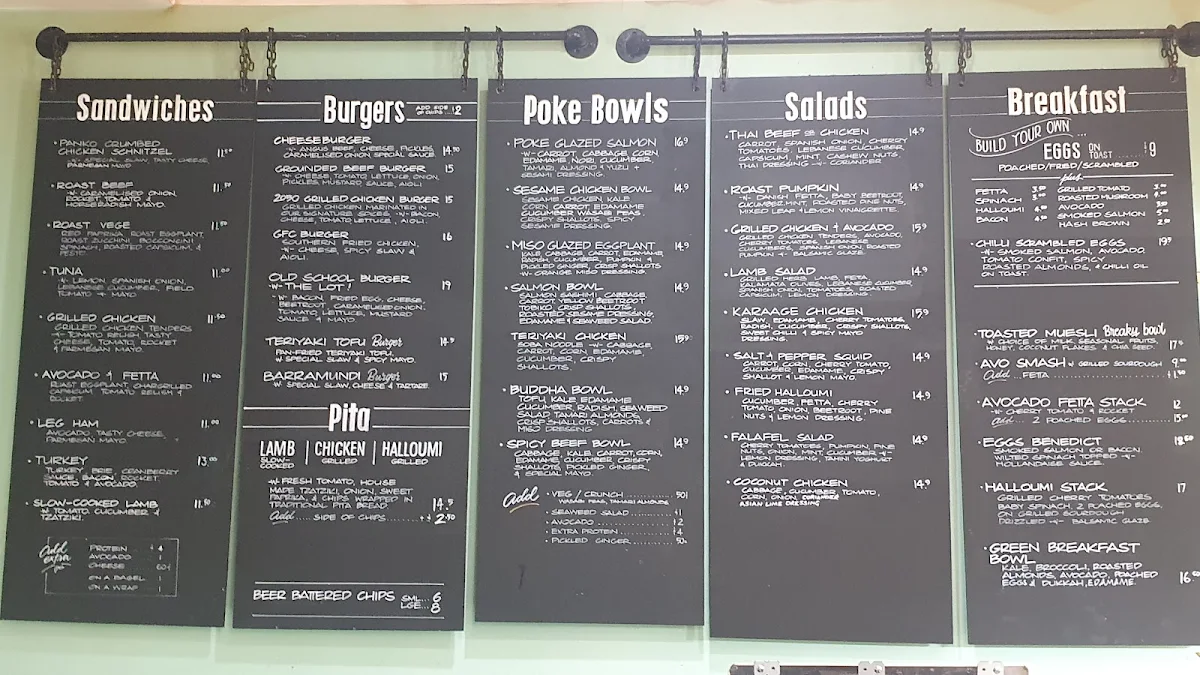 Sandwiches
PANKO CRUMBED
CHICKEN SCHNITZEL 11.50
W/ SPECIAL SLAW, TASTY CHEESE,
PARMESAN MAYO
ROAST BEEF 11.50
W/ CARAMELISED ONION,
ROCKET, TOMATO &
HORSERADISH MAYO.
ROAST VEGE 11.50
RED PAPRIKA, ROAST EGGPLANT,
ROAST ZUCCHINI, BOCCONCINI
SPINACH, ROASTED CAPSICUM, &
PESTO.
TUNA 11.00
W/ LEMON, SPANISH ONION,
LEBANESE CUCUMBER, FIELD
TOMATO & MAYO
GRILLED CHICKEN 11.50
GRILLED CHICKEN TENDERS
W/ TOMATO RELISH, TASTY
CHEESE, TOMATO, ROCKET
& PARMESAN MAYO.
AVOCADO & FETTA 11.00
ROAST EGGPLANT, CHARGRILLED
CAPSICUM, TOMATO RELISH &
ROCKET
LEG HAM 11.00
AVOCADO, TASTY CHEESE,
PARMESAN MAYO
TURKEY 13.00
TURKEY, BRIE, CRANBERRY
SAUCE, BACON, ROCKET,
TOMATO & AVOCADO.
SLOW-COOKED LAMB 11.50
W/ TOMATO, CUCUMBER &
TZATZIKI.
Add extra
PROTEIN 4
AVOCADO 1
CHEESE 60¢
ON A BAGEL 1
ON A WRAP 1
Burgers ADD SIDE OF CHIPS 2
CHEESEBURGER 14.50
W/ ANGUS BEEF, CHEESE, PICKLES,
CARAMELISED ONION, SPECIAL SAUCE
GROUNDED BEEF BURGER 15
W/ CHEESE, TOMATO, LETTUCE, ONION,
PICKLES, MUSTARD, SAUCE, AIOLI.
2090 GRILLED CHICKEN BURGER 15
GRILLED CHICKEN, MARINATED IN
OUR SIGNATURE SPICES, W/ BACON,
CHEESE, TOMATO, LETTUCE, & AIOLI.
GFC BURGER 16
SOUTHERN FRIED CHICKEN,
W/ CHEESE, SPICY SLAW &
AIOLI.
OLD SCHOOL BURGER
W/ THE LOT! 19
W/ BACON, FRIED EGG, CHEESE,
BEETROOT, CARAMELISED ONION,
TOMATO, LETTUCE, MUSTARD
SAUCE & MAYO
TERIYAKI TOFU Burger 14.5
PAN-FRIED TERIYAKI TOFU,
W/ SPECIAL SLAW & SPICY MAYO.
BARRAMUNDI Burger 15
W/ SPECIAL SLAW, CHEESE & TARTARE.
Pita
LAMB SLOW-COOKED | CHICKEN GRILLED | HALLOUMI GRILLED
W/ FRESH TOMATO, HOUSE
MADE TZATZIKI, ONION, SWEET
PAPRIKA, & CHIPS WRAPPED IN
TRADITIONAL PITA BREAD. 14.5
Add ... SIDE OF CHIPS 2.50
BEER BATTERED CHIPS SML... 6
LGE... 8
Poke Bowls
POKE GLAZED SALMON 16.9
W/ CARROT, CABBAGE, CORN,
EDAMAME, NORI, CUCUMBER,
TAMARI, ALMOND & YUZU
SESAMI DRESSING.
SESAME CHICKEN BOWL 14.9
SESAME CHICKEN, KALE
CORN, CARROT, EDAMAME
CUCUMBER, WASABI PEAS,
CRISPY SHALLOTS, SPICY
SESAME DRESSING.
MISO GLAZED EGGPLANT 14.9
KALE, CABBAGE, CARROT, EDAMAME,
RADISH, CUCUMBER, PUMPKIN &
PICKLED GINGER, CRISP SHALLOTS
W/ ORANGE MISO DRESSING.
SALMON BOWL 14.9
SALMON SASHIMI, CABBAGE,
CARROT, YELLOW BEETROOT,
TOBIKO, CRISP SHALLOTS,
ROASTED SESAME DRESSING,
EDAMAME & SEAWEED SALAD.
TERIYAKI CHICKEN 15.9
SOBA NOODLE W/ CABBAGE,
CARROT, CORN, EDAMAME,
CUCUMBER, CRISPY
SHALLOTS,
BUDDHA BOWL 14.9
TOFU, KALE, EDAMAME
CUCUMBER, RADISH, SEAWEED
SALAD, TAMARI ALMONDS,
CRISP SHALLOTS, CARROTS &
MISO DRESSING
SPICY BEEF BOWL 14.9
CABBAGE, KALE, CARROT, CORN,
EDAMAME, CUCUMBER, CRISPY
SHALLOTS, PICKLED GINGER,
& SPECIAL MAYO
Add
VEG / CRUNCH 50¢
WASABI PEAS, TAMARI ALMONDS
SEAWEED SALAD 1
AVOCADO 2
EXTRA PROTEIN 4
PICKLED GINGER 50¢
Salads
THAI BEEF OR CHICKEN 14.9
CARROT, SPANISH ONION, CHERRY
TOMATOES, LEBANESE CUCUMBER,
CAPSICUM, MINT, CASHEW NUTS,
THAI DRESSING W/ CORIANDER
ROAST PUMPKIN 14.9
W/ DANISH FETTA, BABY BEETROOT,
CUCUMBER, MINT, ROASTED PINE NUTS,
MIXED LEAF & LEMON VINAIGRETTE.
GRILLED CHICKEN & AVOCADO 15.9
GRILLED CHICKEN TENDERS, AVOCADO,
CHERRY TOMATOES, LEBANESE
CUCUMBERS, SPANISH ONION, ROASTED
PUMPKIN & BALSAMIC GLAZE.
LAMB SALAD 14.9
GRILLED HERB LAMB, FETA,
KALAMATA OLIVES, LEBANESE CUCUMBER,
SPANISH ONION, TOMATOES, ROASTED
CAPSICUM, LEMON DRESSING.
KARAAGE CHICKEN 15.9
SLAW, EDAMAME, CHERRY TOMATOES,
RADISH, CUCUMBER, CRISPY SHALLOTS,
SWEET CHILLI & SPICY MAYO
DRESSING.
SALT & PEPPER SQUID 14.9
CARROT, CORN, CHERRY TOMATO,
CUCUMBER, EDAMAME, CRISPY
SHALLOT & LEMON MAYO.
FRIED HALLOUMI 14.9
CUCUMBER, FETTA, CHERRY
TOMATO, ONION, BEETROOT, PINE
NUTS & LEMON DRESSING.
FALAFEL SALAD 14.9
CHERRY TOMATOES, PUMPKIN, PINE
NUTS, ONION, MINT, CUCUMBER W/
LEMON DRESSING, TAHINI YOGHURT
& DUKKAH.
COCONUT CHICKEN 14.9
CABBAGE, CUCUMBER, TOMATO,
CORN, ONION, CORIANDER
ASIAN LIME DRESSING
Breakfast
BUILD YOUR OWN ...
EGGS ON TOAST 9
POACHED/FRIED/SCRAMBLED
plus
FETTA
SPINACH
HALLOUMI
BACON
GRILLED TOMATO
ROASTED MUSHROOM
AVOCADO
SMOKED SALMON
HASH BROWN
CHILLI SCRAMBLED EGGS 19.5
W/ SMOKED SALMON, AVOCADO,
TOMATO CONFIT, SPICY
ROASTED ALMONDS, & CHILLI OIL
ON TOAST.
TOASTED MUESLI Breaky bowl
W/ CHOICE OF MILK, SEASONAL FRUITS,
HONEY, COCONUT FLAKES, & CHIA SEED. 17.5
AVO SMASH W/ GRILLED SOURDOUGH
Add ... FETA 1.50
AVOCADO FETTA STACK 12
W/ CHERRY TOMATO & ROCKET
Add ... 2 POACHED EGGS 15.00
EGGS BENEDICT 18.50
SMOKED SALMON OR BACON,
WILTED SPINACH TOPPED W/
HOLLANDAISE SAUCE.
HALLOUMI STACK 17
GRILLED CHERRY TOMATOES
BABY SPINACH, 2 POACHED EGGS,
ON GRILLED SOURDOUGH
DRIZZLED W/ BALSAMIC GLAZE
GREEN BREAKFAST
BOWL
KALE, BROCCOLI, ROASTED
ALMONDS, AVOCADO, POACHED
EGGS & DUKKAH, EDAMAME. 16.50